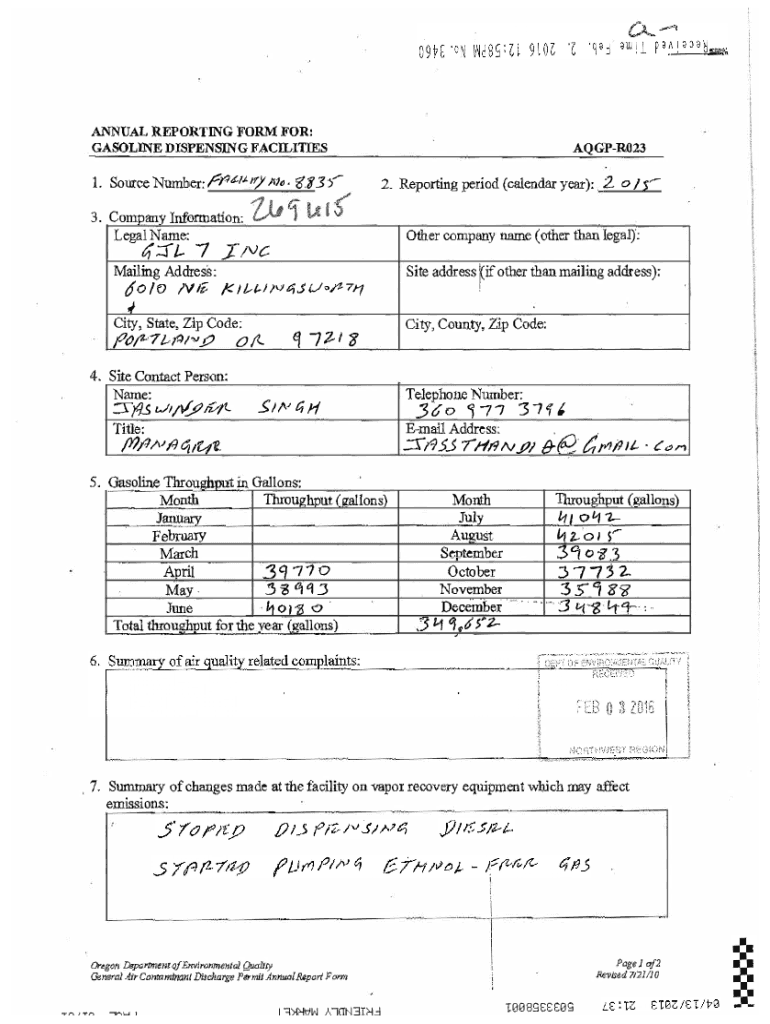 Received Time Feb. 2. 2016 12:58PM No. 3460
ANNUAL REPORTING FORM FOR:
GASOLINE DISPENSING FACILITIES AQGP-R023
1. Source Number: FACILITY No. 8835 2. Reporting period (calendar year): 2015
3. Company Information: 269615
Legal Name: Other company name (other than legal):
GJL 7 INC
Mailing Address: Site address (if other than mailing address):
6010 NE KILLINGSWORTH
City, State, Zip Code: City, County, Zip Code:
PORTLAND OR 97218
4. Site Contact Person:
Name: Telephone Number:
JASWINDER SINGH 360 977 3796
Title: E-mail Address:
MANAGER @GMAIL.COM
5. Gasoline Throughput in Gallons:
Month Throughput (gallons) Month Throughput (gallons)
January July 41042
February August 42015
March September 39083
April 39770 October 37732
May 38993 November 35988
June 40180 December 34849
Total throughput for the year (gallons) 349,652
6. Summary of air quality related complaints:
DEPT OF ENVIRONMENTAL QUALITY
RECEIVED
FEB 03 2016
NORTHWEST REGION
7. Summary of changes made at the facility on vapor recovery equipment which may affect
emissions:
STOPED DISPENSING DIESEL
STARTED PUMPING ETHNOL-FREE GAS
Oregon Department of Environmental Quality Page 1 of 2
General Air Contaminant Discharge Permit Annual Report Form Revised 7/21/10
04/13/2013 21:37 5033358001 FRIENDLY MARKET